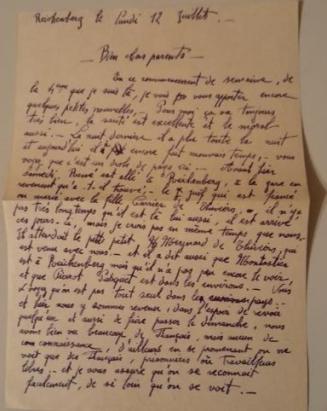 Reichenberg le lundi 12 Juillet. -
- Bien chers parents -
En ce commencement de semaine, de
la 4ème que je suis là, je viens vous apporter encore
quelques petites nouvelles. - Pour moi ça va toujours
très bien, la santé est excellente et le moral
aussi. - La nuit dernière il a plu toute la nuit
et aujourd'hui il fait encore fort mauvais temps, - vous
voyez que c'est un drôle de pays
samedi, René est allé à Reichenberg, à la gare en
revenant qu'a-t-il trouvé: - le
en mariage avec la fille de Thiviers, il n'y a
pas très longtemps qu'il est là lui aussi, il est arrivé
ces jours mais je crois pas en même temps que nous. -
Il attendait le petit. de Thiviers qui
est venu avec nous. - et il a dit aussi que
est à Reichenberg mais qu'il n'a pas pu encore le voir. -
et que Pierrot est dans les environs. - Vous
voyez qu'on est pas tout seul dans les pays. -
et hier nous y sommes revenus, dans l'espoir de revoir
quelqu'un et aussi de faire passer le dimanche, nous
avons bien vu beaucoup de Français, mais aucun de
connaissance, d'ailleurs en se promenant on ne
voit que des Français, prisonniers ou travailleurs
libres. - et je vous assure qu'on se reconnait
facilement, de si loin qu'on se voit. -